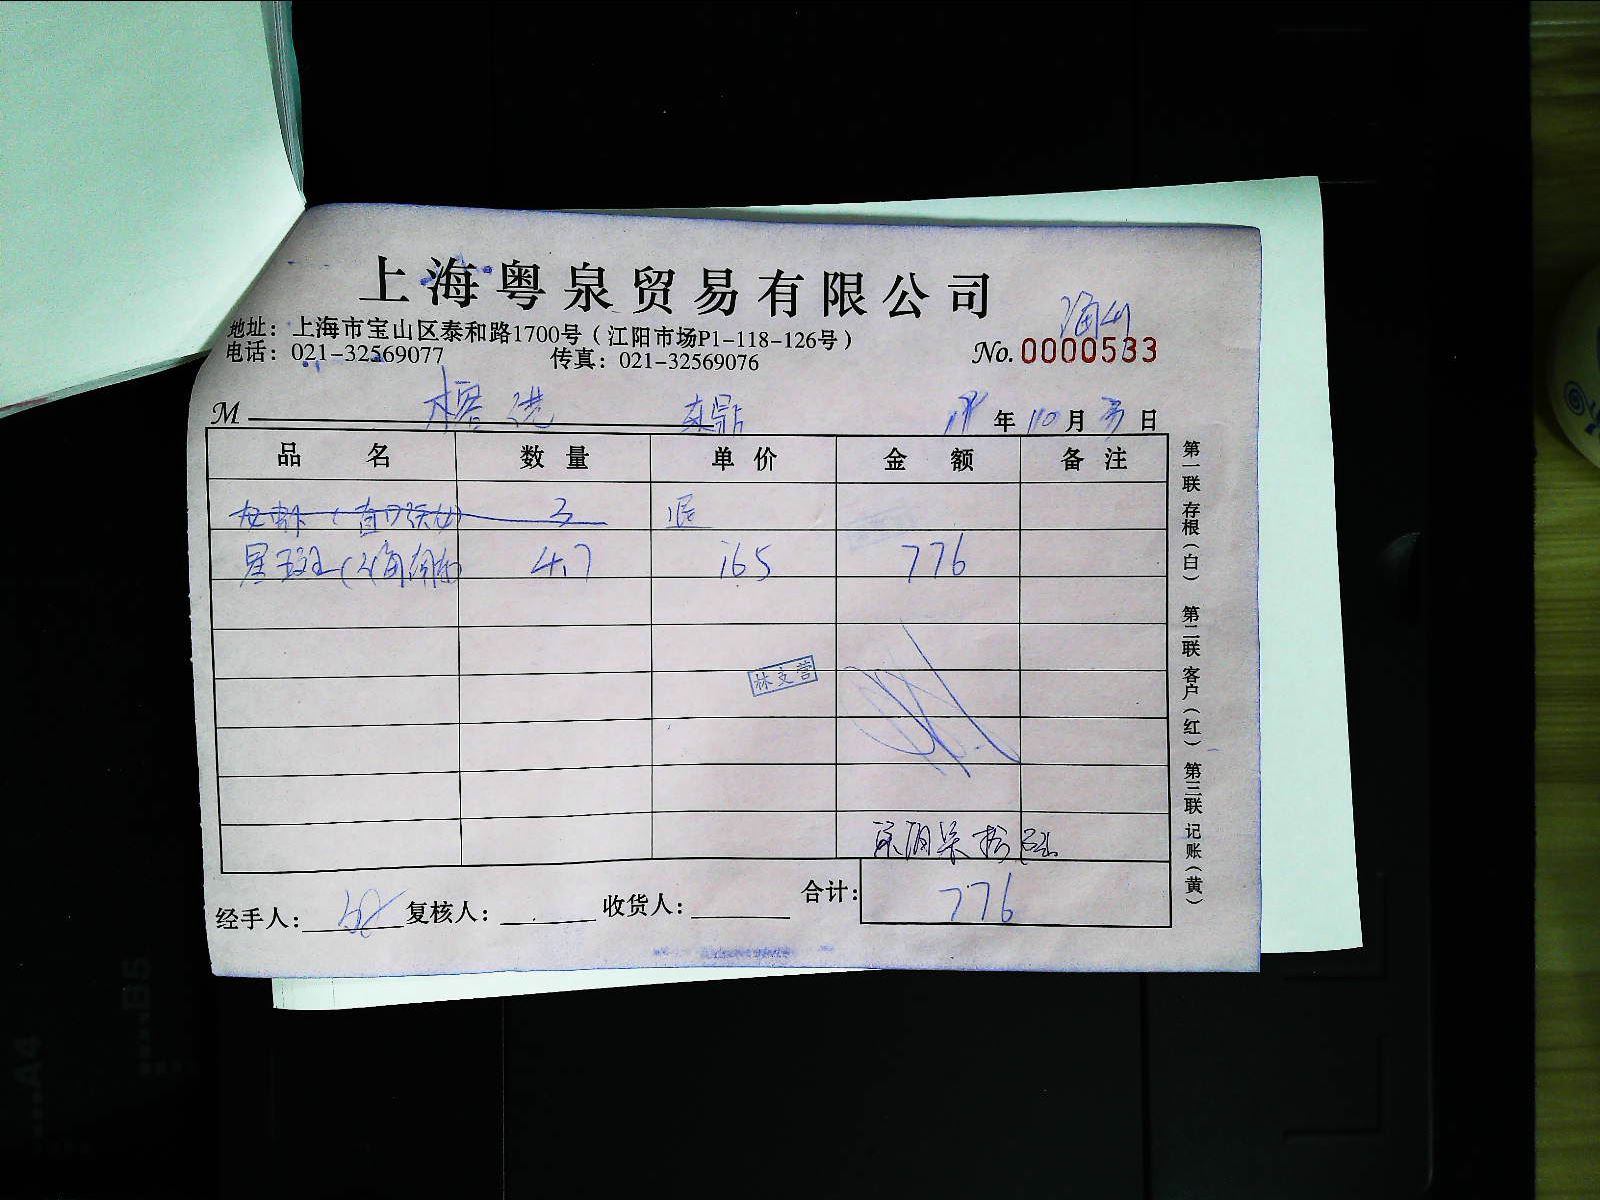 上海粤泉贸易有限公司
地址：上海市宝山区泰和路1700号（江阳市场P1-118-126号）
电话：021-32569077 传真：021-32569076
No. 0000533
M 榕港 东鼎 年 10 月 日
品 名 数 量 单 价 金 额 备 注
3 退
星斑 4.7 165 776
林文营
776
经手人： 复核人： 收货人： 合计：
第一联 存根（白） 第二联 客户（红） 第三联 记账（黄）
B5
A4